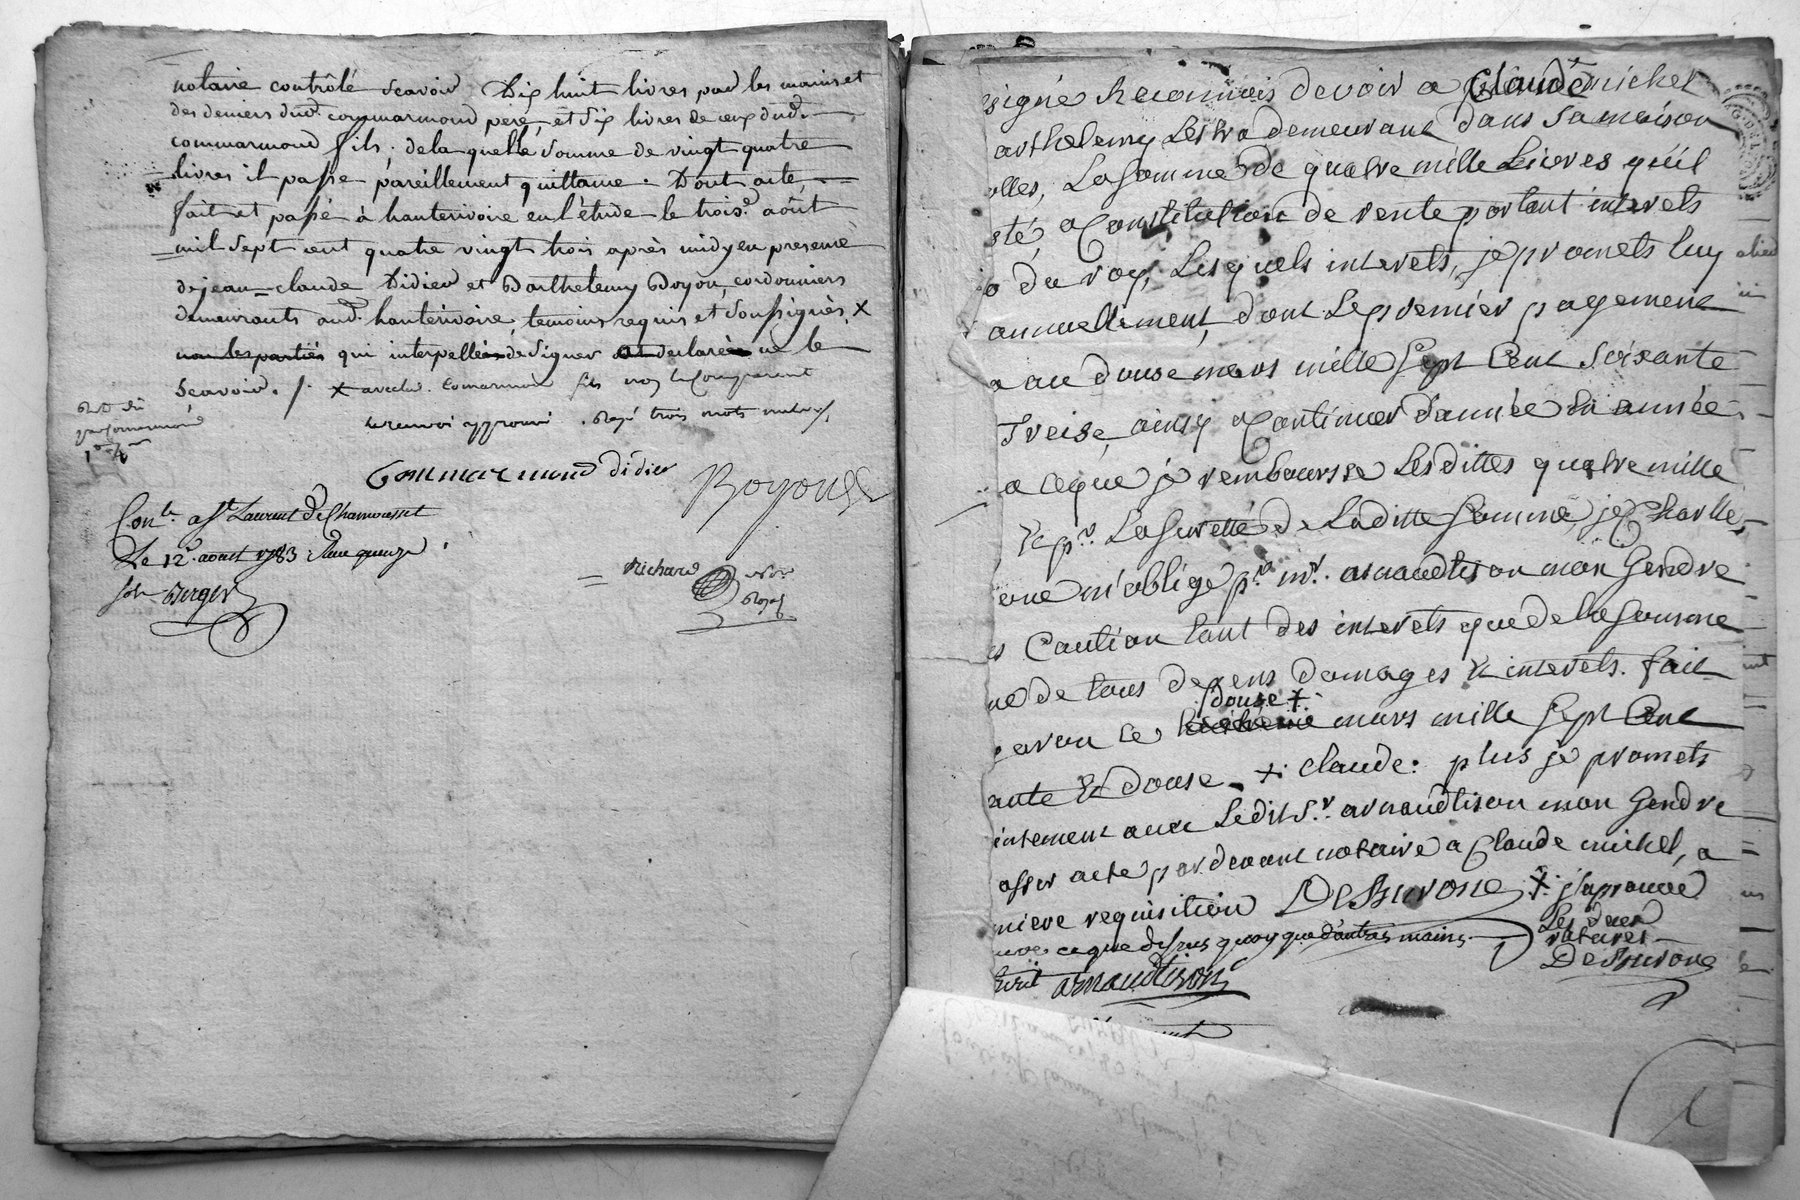 notaire contrôlé scavoir Dix huit livres par les mains et
des deniers dud. commarmond pere, et six livres de ceux dud.
commarmond fils, de la quelle somme de vingt quatre
livres il passe pareillement quittance. Dont acte,
fait et passé à hauterivoire en l'étude le trois.e aôut
mil sept cent quatre vingt trois après midy en presence
de jean-claude Didier et Barthelemy Boyou, cordonniers
demeurants aud. hauterivoire, temoins requis et soussignés, x
non les parties qui interpellé de signer ont declaré ne le
scavoir. /. x avec led. Comarmond fils non le Comparant
le renvoi approuvé. Rayé trois mots nuls /.
Commarmond didier
Boyou
Con.lé a St Laurent De Chamousset
Le 12 aoust 1783
Berger
Richard
no.re
Royal
signé Reconnois devoir a Claude michel
arthelemy Lestra demeurant dans sa maison
olles, La Somme de quatre mille Livres qu'il
sté a Constitution de rente portant interets
x du roy, Lesquels interets, je promets luy
annuellement, dont Le premier pagement
a au douse mars mille Sept Cent Soixante
Treise, ainsy a Continuer d'année en année
a ceque je rembourse Les dittes quatre mille
& pr. La suretté de Laditte Somme, je Charlle
one m'oblige mr. arnaudtison mon Gendre
es Caution tant des interets que de la Somme
ue de tous depens domages & interets. fait
douse x
avon ce mars mille Sept Cent
ante & douse x: Claude: plus je promets
intement avec Ledit Sr. arnaudtison mon Gendre
asser acte par devant notaire a Claude michel, a
miere requisition DeSurvone x: j'aprouve
Les deux
ratures
DeSurvone
uve ce que dessus quoy que d'autres mains
Ecrit arnaudtison